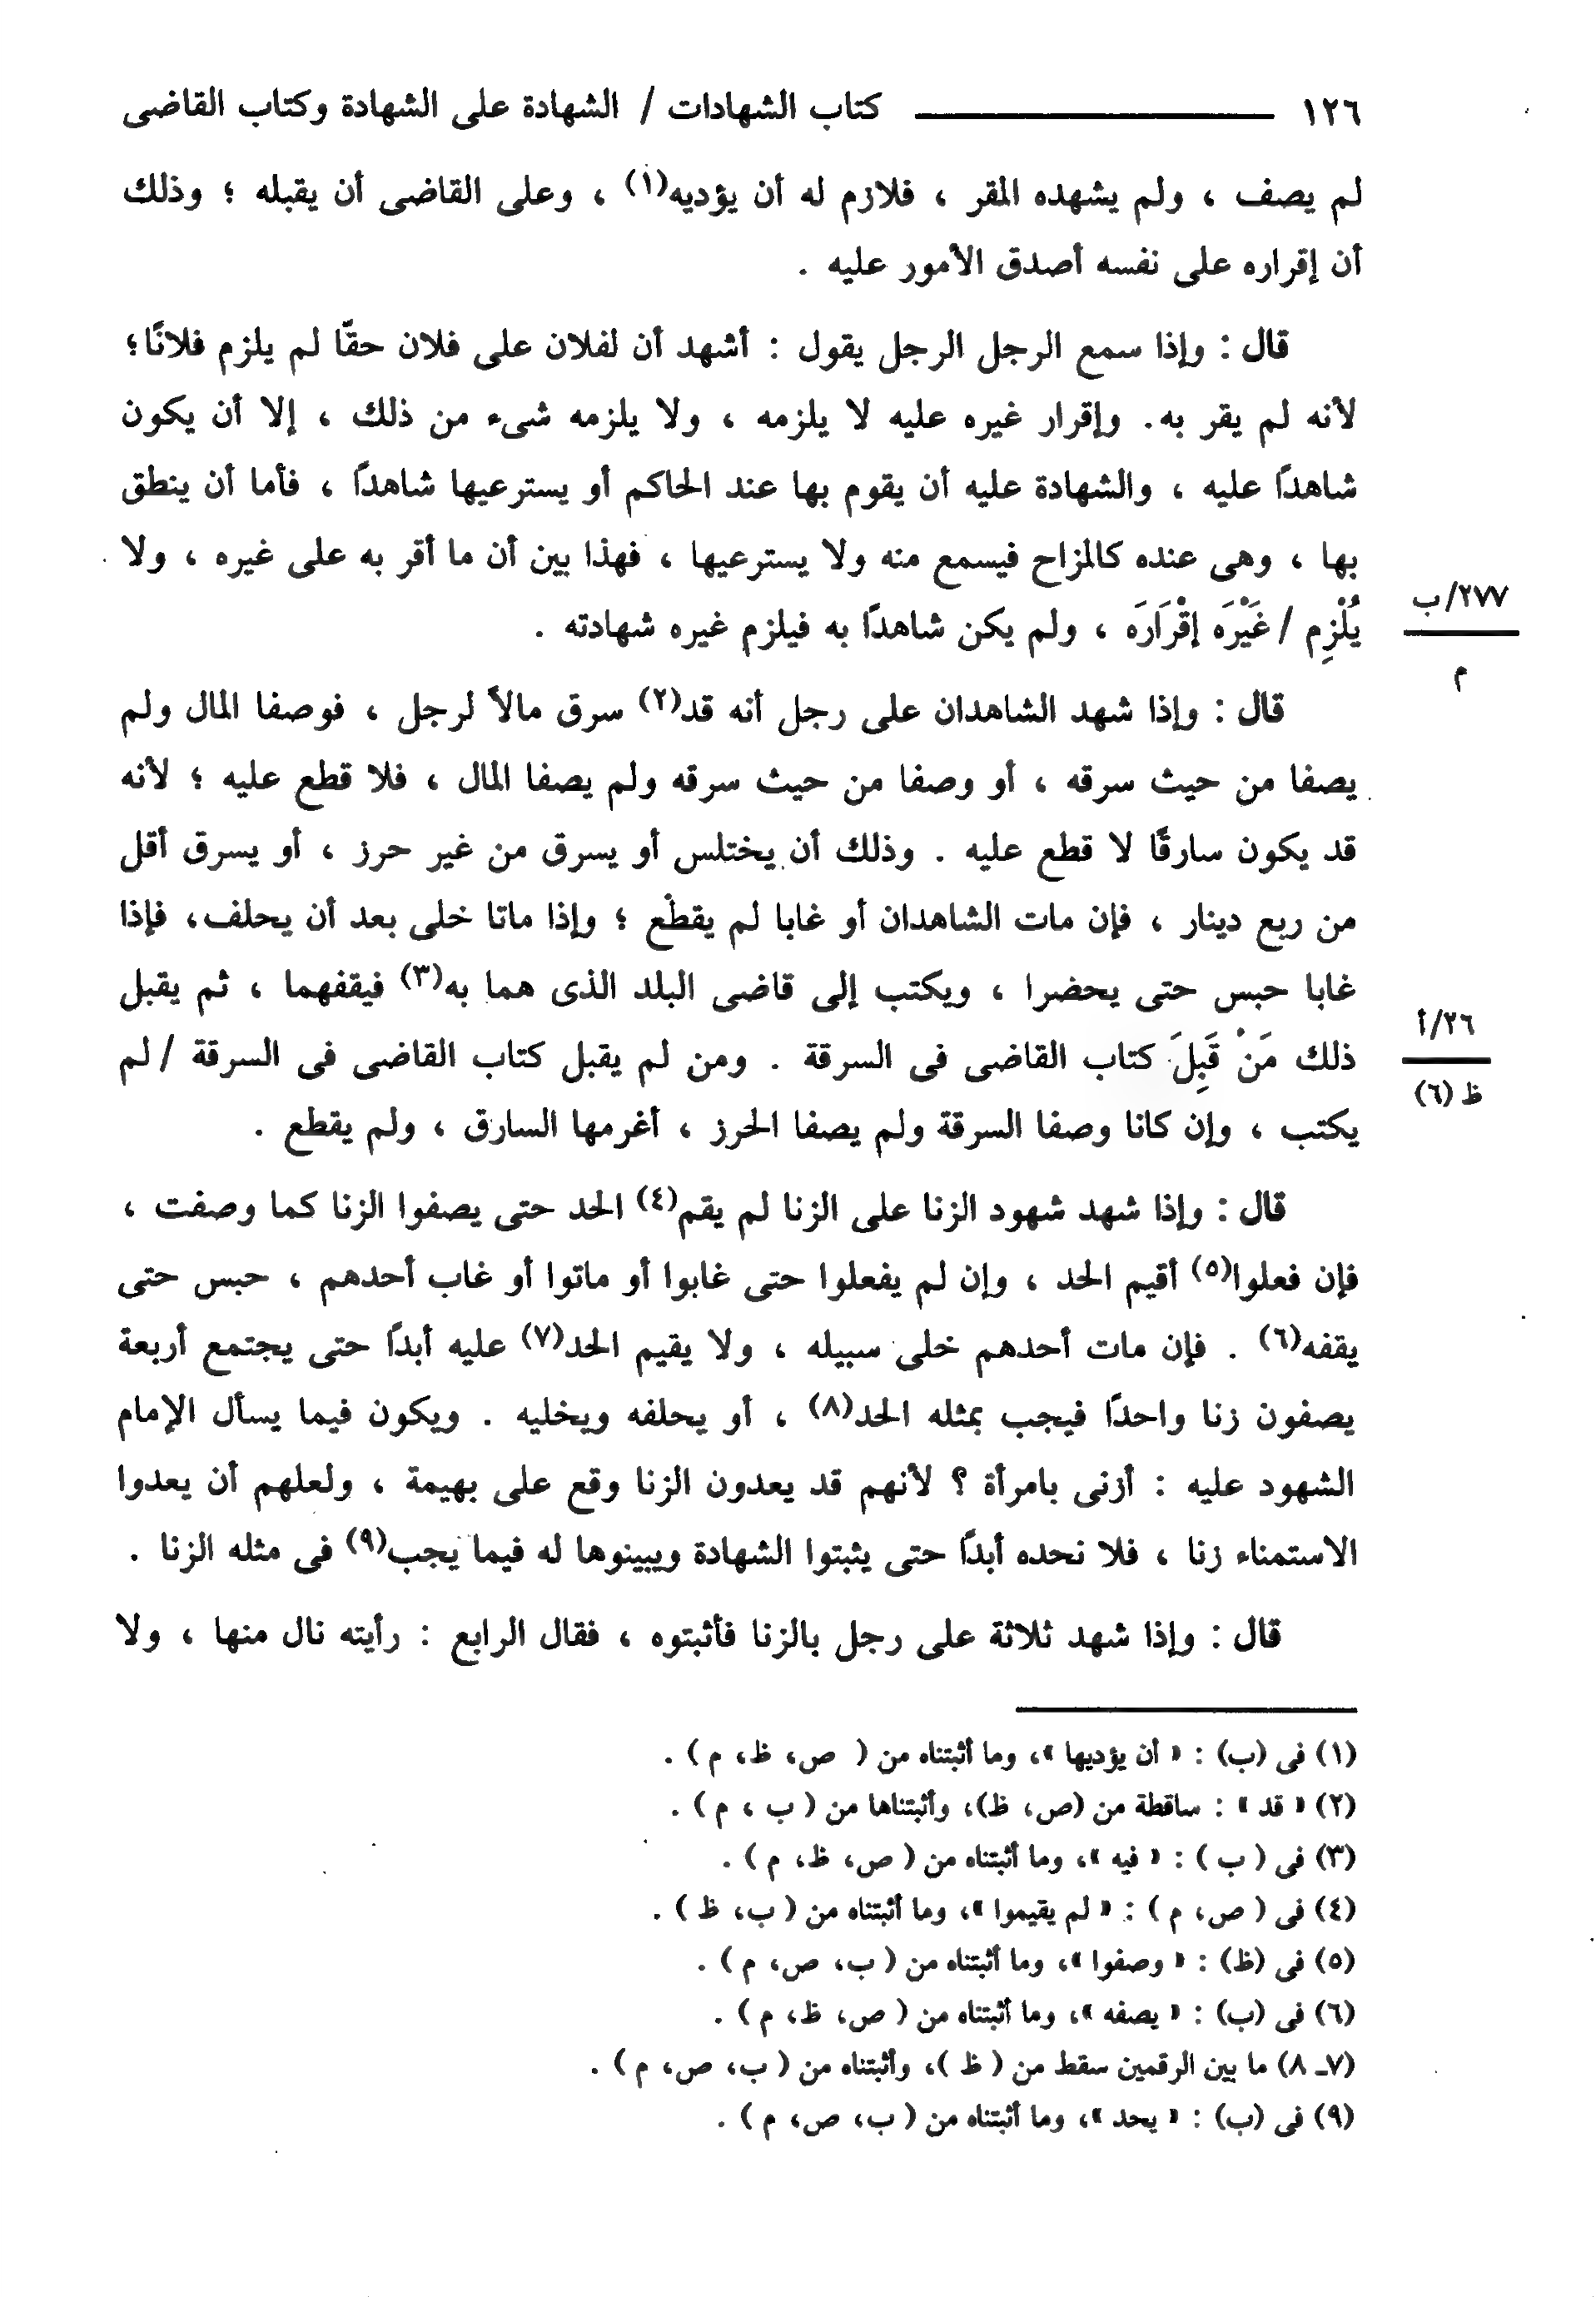 ١٢٦ ــــــــــــــــ كتاب الشهادات / الشهادة على الشهادة وكتاب القاضى
لم يصف ، ولم يشهده المقر ، فلازم له أن يؤديه(١) ، وعلى القاضى أن يقبله ؛ وذلك
أن إقراره على نفسه أصدق الأمور عليه .
قال : وإذا سمع الرجل الرجل يقول : أشهد أن لفلان على فلان حقّا لم يلزم فلانًا؛
لأنه لم يقر به. وإقرار غيره عليه لا يلزمه ، ولا يلزمه شىء من ذلك ، إلا أن يكون
شاهدًا عليه ، والشهادة عليه أن يقوم بها عند الحاكم أو يسترعيها شاهدًا ، فأما أن ينطق
بها ، وهى عنده كالمزاح فيسمع منه ولا يسترعيها ، فهذا بين أن ما أقر به على غيره ، ولا
٢٧٧/ب
يُلْزِم / غَيْرَه إقْرَارَه ، ولم يكن شاهدًا به فيلزم غيره شهادته .
م
قال : وإذا شهد الشاهدان على رجل أنه قد(٢) سرق مالاً لرجل ، فوصفا المال ولم
يصفا من حيث سرقه ، أو وصفا من حيث سرقه ولم يصفا المال ، فلا قطع عليه ؛ لأنه
قد يكون سارقًا لا قطع عليه . وذلك أن يختلس أو يسرق من غير حرز ، أو يسرق أقل
من ربع دينار ، فإن مات الشاهدان أو غابا لم يقطع ؛ وإذا ماتا خلى بعد أن يحلف، فإذا
غابا حبس حتى يحضرا ، ويكتب إلى قاضى البلد الذى هما به(٣) فيقفهما ، ثم يقبل
٢٦/أ
ذلك مَنْ قَبِلَ كتاب القاضى فى السرقة . ومن لم يقبل كتاب القاضى فى السرقة / لم
ظ (٦)
يكتب ، وإن كانا وصفا السرقة ولم يصفا الحرز ، أغرمها السارق ، ولم يقطع .
قال : وإذا شهد شهود الزنا على الزنا لم يقم(٤) الحد حتى يصفوا الزنا كما وصفت ،
فإن فعلوا(٥) أقيم الحد ، وإن لم يفعلوا حتى غابوا أو ماتوا أو غاب أحدهم ، حبس حتى
يقفه(٦) . فإن مات أحدهم خلى سبيله ، ولا يقيم الحد(٧) عليه أبدًا حتى يجتمع أربعة
يصفون زنا واحدًا فيجب بمثله الحد(٨) ، أو يحلفه ويخليه . ويكون فيما يسأل الإمام
الشهود عليه : أزنى بامرأة ؟ لأنهم قد يعدون الزنا وقع على بهيمة ، ولعلهم أن يعدوا
الاستمناء زنا ، فلا نحده أبدًا حتى يثبتوا الشهادة ويبينوها له فيما يجب(٩) فى مثله الزنا .
قال : وإذا شهد ثلاثة على رجل بالزنا فأثبتوه ، فقال الرابع : رأيته نال منها ، ولا
(١) فى (ب) : « أن يؤديها »، وما أثبتناه من ( ص، ظ، م ) .
(٢) « قد » : ساقطة من (ص، ظ)، وأثبتناها من ( ب ، م ) .
(٣) فى ( ب ) : « فيه »، وما أثبتناه من ( ص، ظ، م ) .
(٤) فى ( ص، م ) : « لم يقيموا »، وما أثبتناه من ( ب، ظ ) .
(٥) فى (ظ) : « وصفوا »، وما أثبتناه من ( ب، ص، م ) .
(٦) فى (ب) : « يصفه »، وما أثبتناه من ( ص، ظ، م ) .
(٧ـ ٨) ما بين الرقمين سقط من ( ظ )، وأثبتناه من ( ب، ص، م ) .
(٩) فى (ب) : « يحد »، وما أثبتناه من ( ب، ص، م ) .